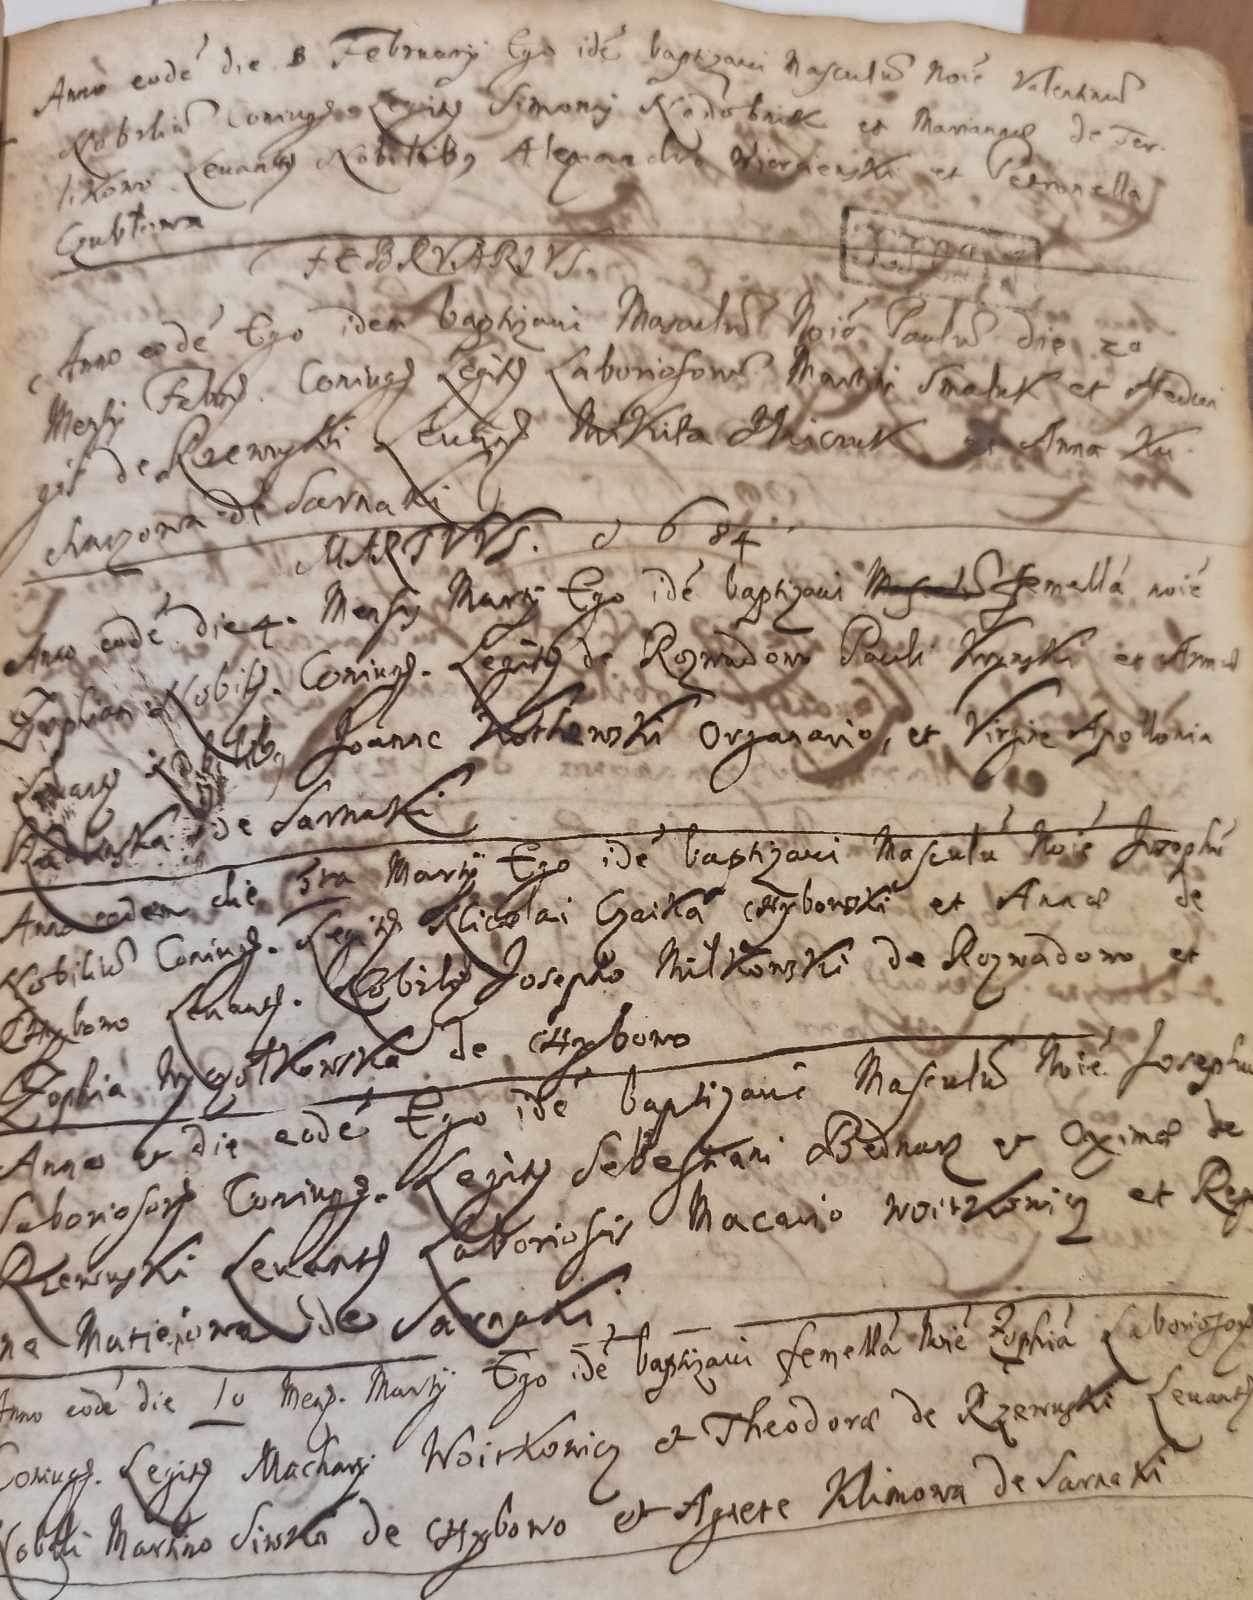 Anno eodé die 8 February Ego idé baptizavi Masculũ Noié Valentinũ
Nobiliũ Coniugũ Legitỹ Simonis et Mariannæ de Ter-
likowo Levantỹ Nobilibg Alexandro et Petronella
FEBRVARIVS
Anno eodé Ego idem baptizavi Masculũ Noié Paulũ die 20
Mensis Febrỹ. Coniugỹ Legitỹ Laboriosorũ Martini Smaluk et Hedvi
gis de Rzewuski Levantỹ Mikita et Anna Ku-
charzowa de Sarnaki
MARTIVVS. 1684
Anno eodé die 4. Mensis Martỹ Ego idé baptizavi femellá noié
Zophian Nobilỹ. Coniugỹ. Legitỹ de Rozwadowo Pauli et Annæ
Joanne Organario, et Virgine Apollonia
de Sarnaki
Anno eodem die 5ta Martỹ Ego idé baptizavi Masculũ Noié Josephũ
Nobiliũ Coniugỹ. Legitỹ Nicolai Czaika Chybowski et Annæ de
Chybowo Levantỹ. Nobilỹ Josepho Milkowski de Rozwadowo et
Zophia de Chybowo
Anno et die eodé Ego idé baptizavi Masculũ Noié Josephu
Laboriosorỹ Coniugỹ. Legitỹ Sebestiani Bednarz et Oximæ de
Rzewuski Levantỹ Laboriosis Macario Woitkowicz et Regi
na Matieiowa de Sarnaki
Anno eodé die 10 Mensỹ. Martỹ Ego idé baptizavi femellá Noié Zophiá Laboriosorỹ
Coniugỹ. Legitỹ Macharỹ Woitkowicz et Theodoræ de Rzewuski Levantỹ
Nobili Martino de Chybowo et Agnete Klimowa de Sarnaki